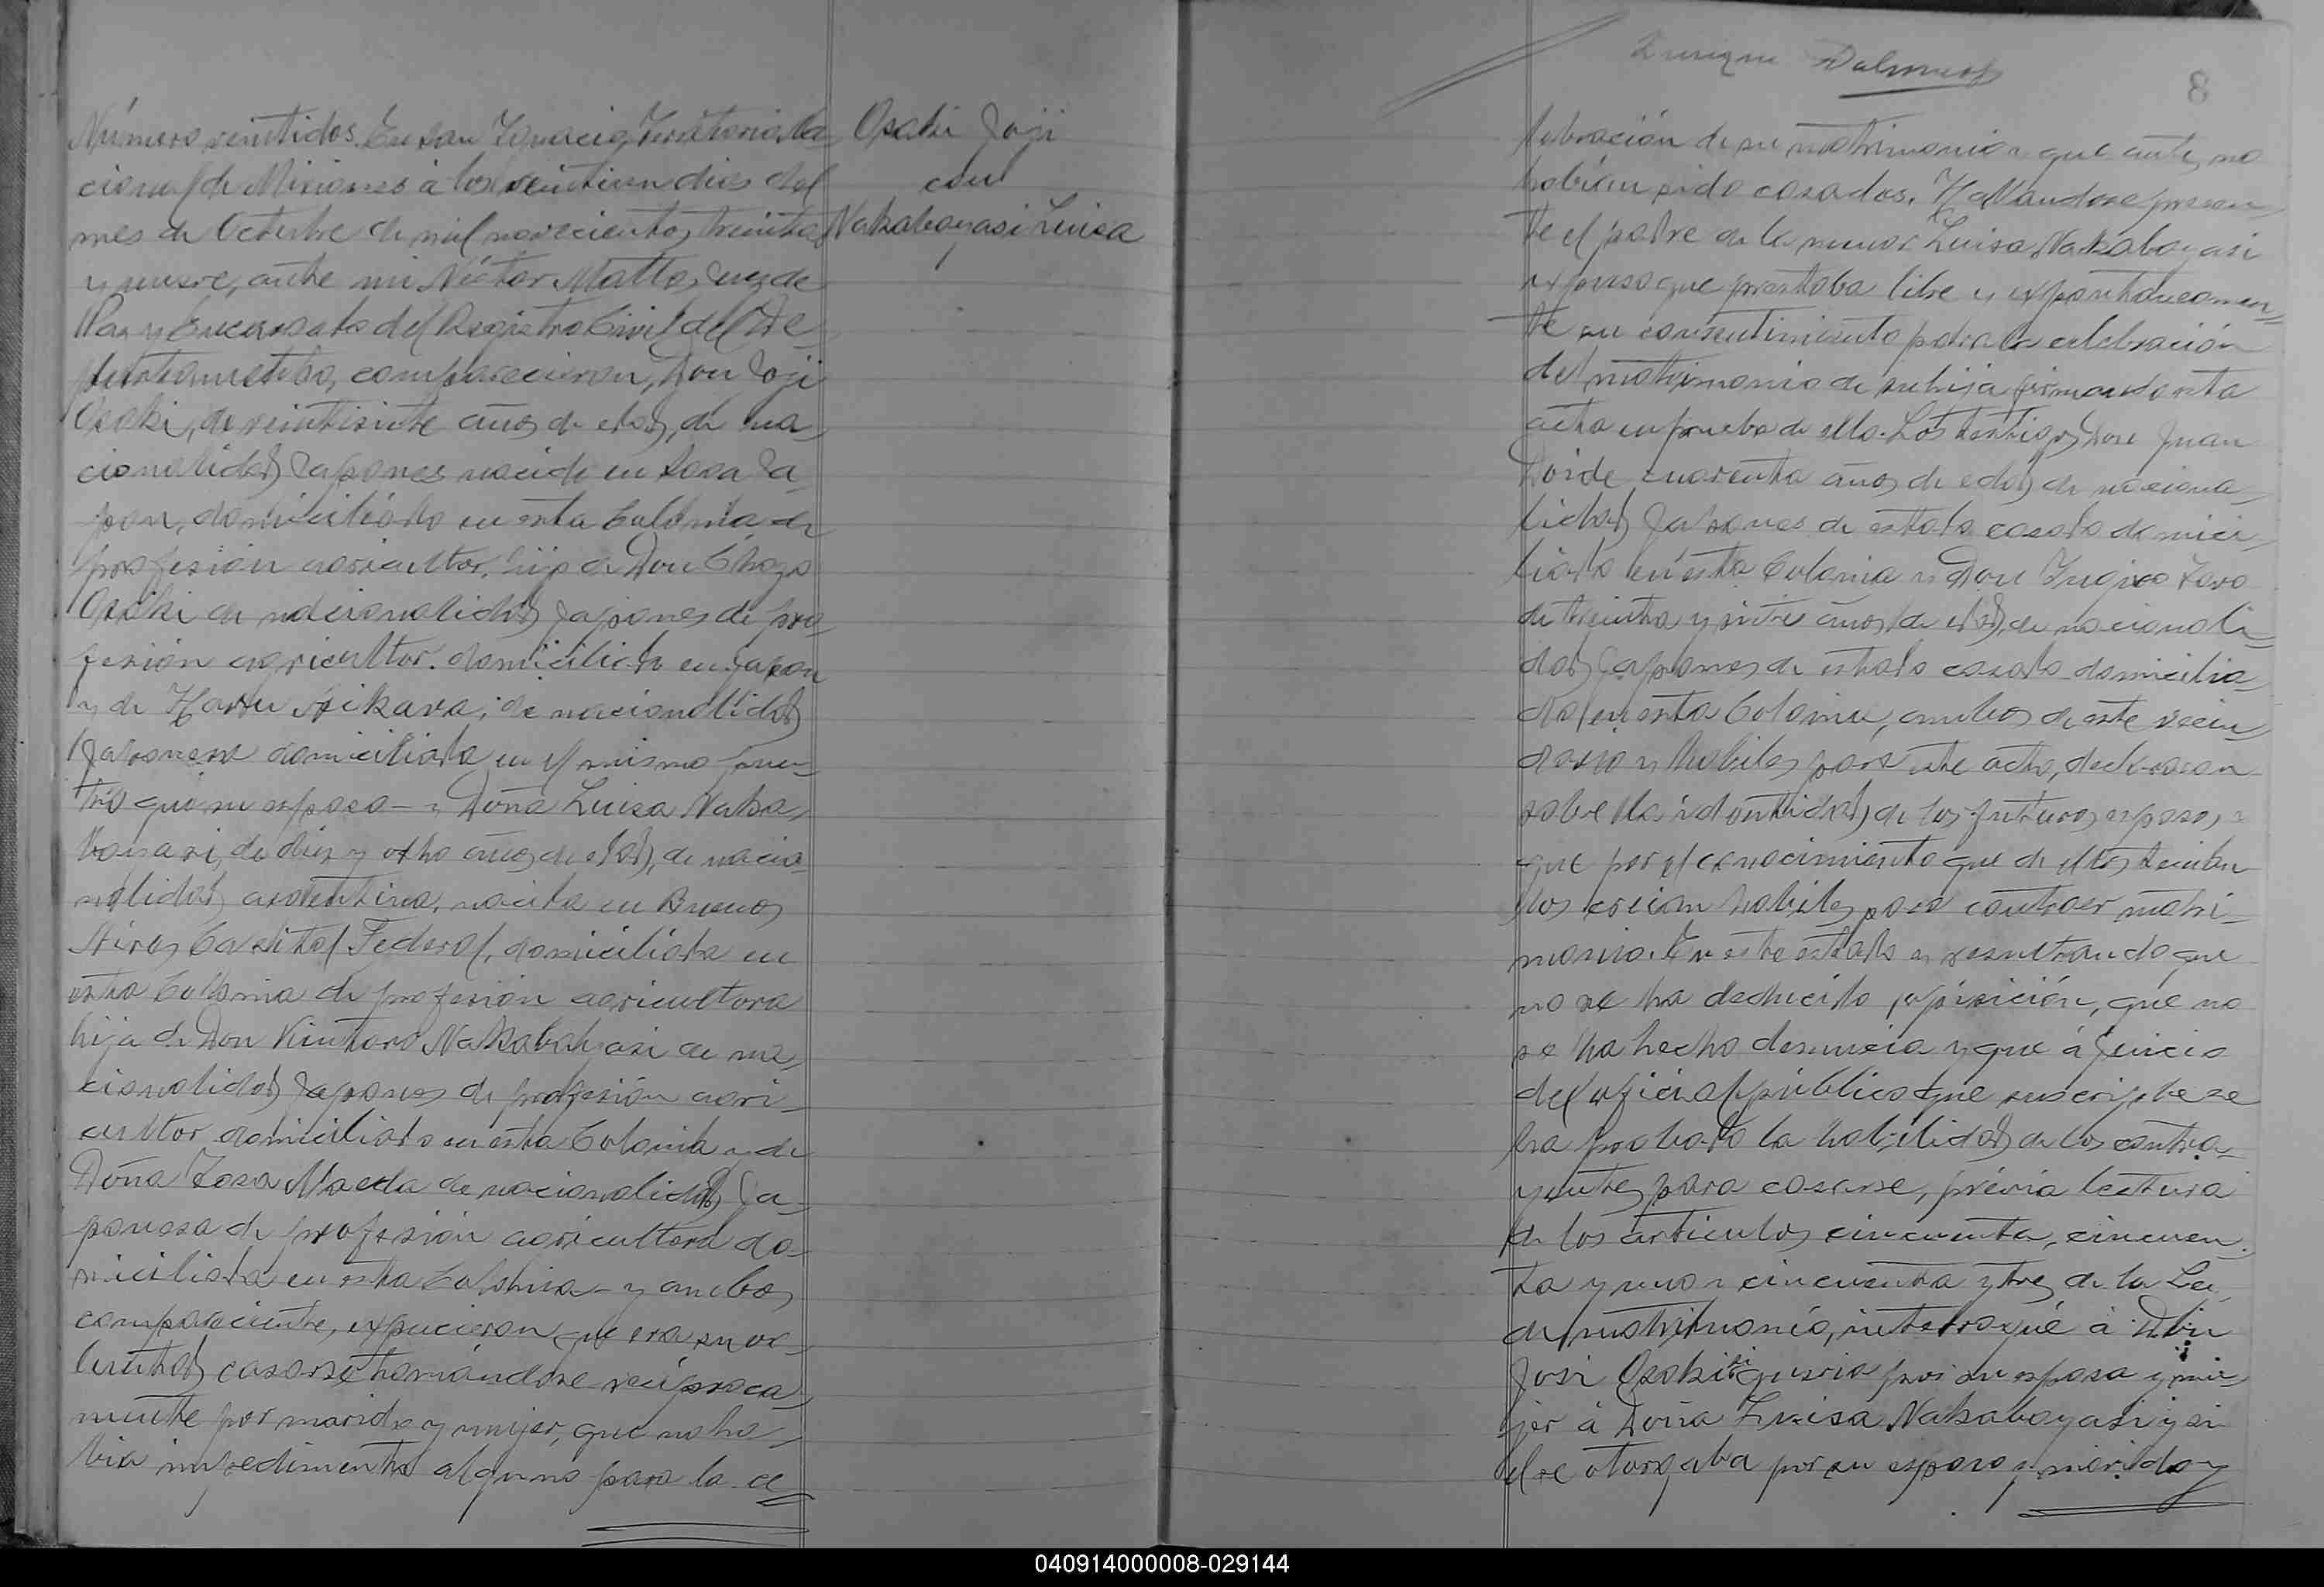 Número veintidos. En San Ignacio, Territorio Na
cional de Misiones á los veintiun dias del
mes de Octubre de mil novecientos treinta
y nueve, ante mi Néctor Matto, Juez de
Paz y Encargado del Registro Civil del De
partamento, comparecieron, Don Joji
Osaki, de veintisiete años de edad, de na
cionalidad Japones nacido en Ja
pon, domiciliado en esta Colonia de
profesión agricultor, hijo de Don
Osaki de nacionalidad japones de pro
fesión agricultor domiciliado en Japon
y de Haru de nacionalidad
Japonesa domiciliada en el mismo pun
to que su esposo - y Doña Luisa Naka
boyasi, de diez y ocho años de edad, de nacio
nalidad argentina, nacida en Buenos
Aires Capital Federal, domiciliada en
esta Colonia de profesión agricultora
hija de Don Kintaro Nakabayasi de na
cionalidad Japones de profesión agri
cultor domiciliado en esta Colonia y de
Doña Maeda de nacionalidad Ja
ponesa de profesión agricultora do
miciliada en esta Colonia - y ambos
comparecientes, expucieron que era su vo
luntad casarse tomándose recíproca
mente por marido y mujer, que no ha
bia impedimento alguno para la ce
Osaki Joji
con
Nakaboyasi Luisa
8
lebración de su matrimonio y que antes no
habían sido casados. Hallandose presen
te el padre de la menor Luisa Nakaboyasi
expuso que prestaba libre y expontaneamen
te su consentimiento para la celebración
del matrimonio de su hija firmando esta
acta en prueba de ello. Los testigos Don Juan
cuarenta años de edad de naciona
lidad Japones de estado casado domici
liado en ésta Colonia y Don
de treinta y siete años de edad, de nacionali
dad japones de estado casado domicilia
do en esta Colonia, ambos de este vecin
dario y habiles para este acto, declararon
sobre la identidad de los futuros esposos y
que por el conocimiento que de ellos tenian
los creian habiles para contraer matri
monio. En este estado y resultando que
no se ha deducido oposición, que no
se ha hecho denuncia y que á juicio
del oficial público que suscribe se
ha probado la habilidad de los contra
yentes para casarse, prévia lectura
de los artículos cincuenta, cincuen
ta y uno y cincuenta y tres de la Ley
de matrimonio, interrogué á Don
Josi Osaki si queria por su esposa y mu
jer á Doña Luisa Nakaboyasi y si
el se otorgaba por su esposo y marido y
040914000008-029144